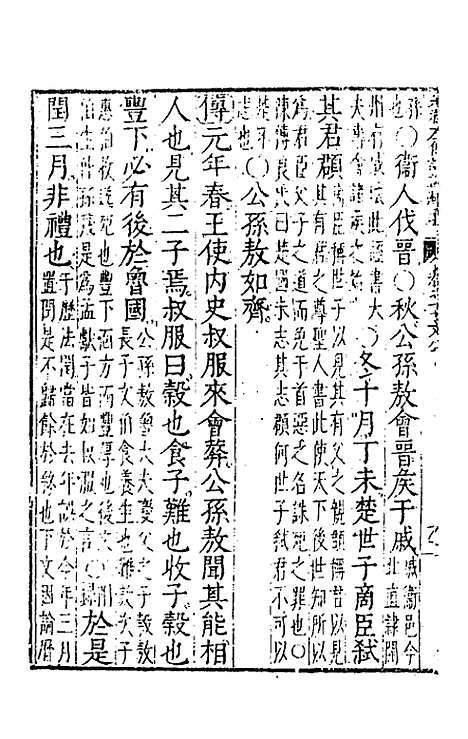 也○衛人伐晉○秋公孫敖會晉侯于戚
戚衛邑今
北直隷開
州有戚城此經書大
夫專會諸侯之始
○冬十月丁未楚世子商臣弒
其君頵
商臣稱世子以見其有父之親頵稱君以見其有
君之尊聖人書此使天下後世知所以
為君臣父子之道而免于首惡之名誅死之罪也○
陳傅良氏曰未志其志頵何世子弒君不可以
志也○
公孫敖如齊
傳元年春王使內史叔服來會葬公孫敖聞其能相
人也見其二子焉叔服曰穀也食子難也收子穀也
豐下必有後於魯國
公孫敖魯大夫慶父之子穀敖
長子文伯食養生也難敖次子
惠叔收葬死也豐下面方而豐厚也後文
伯生孟孫蔑是為孟獻子皆如叔服之言○
於是
閏三月非禮也
于歷法閏當在去年誤於今年三月
置閏是不歸餘於終也下文因論曆